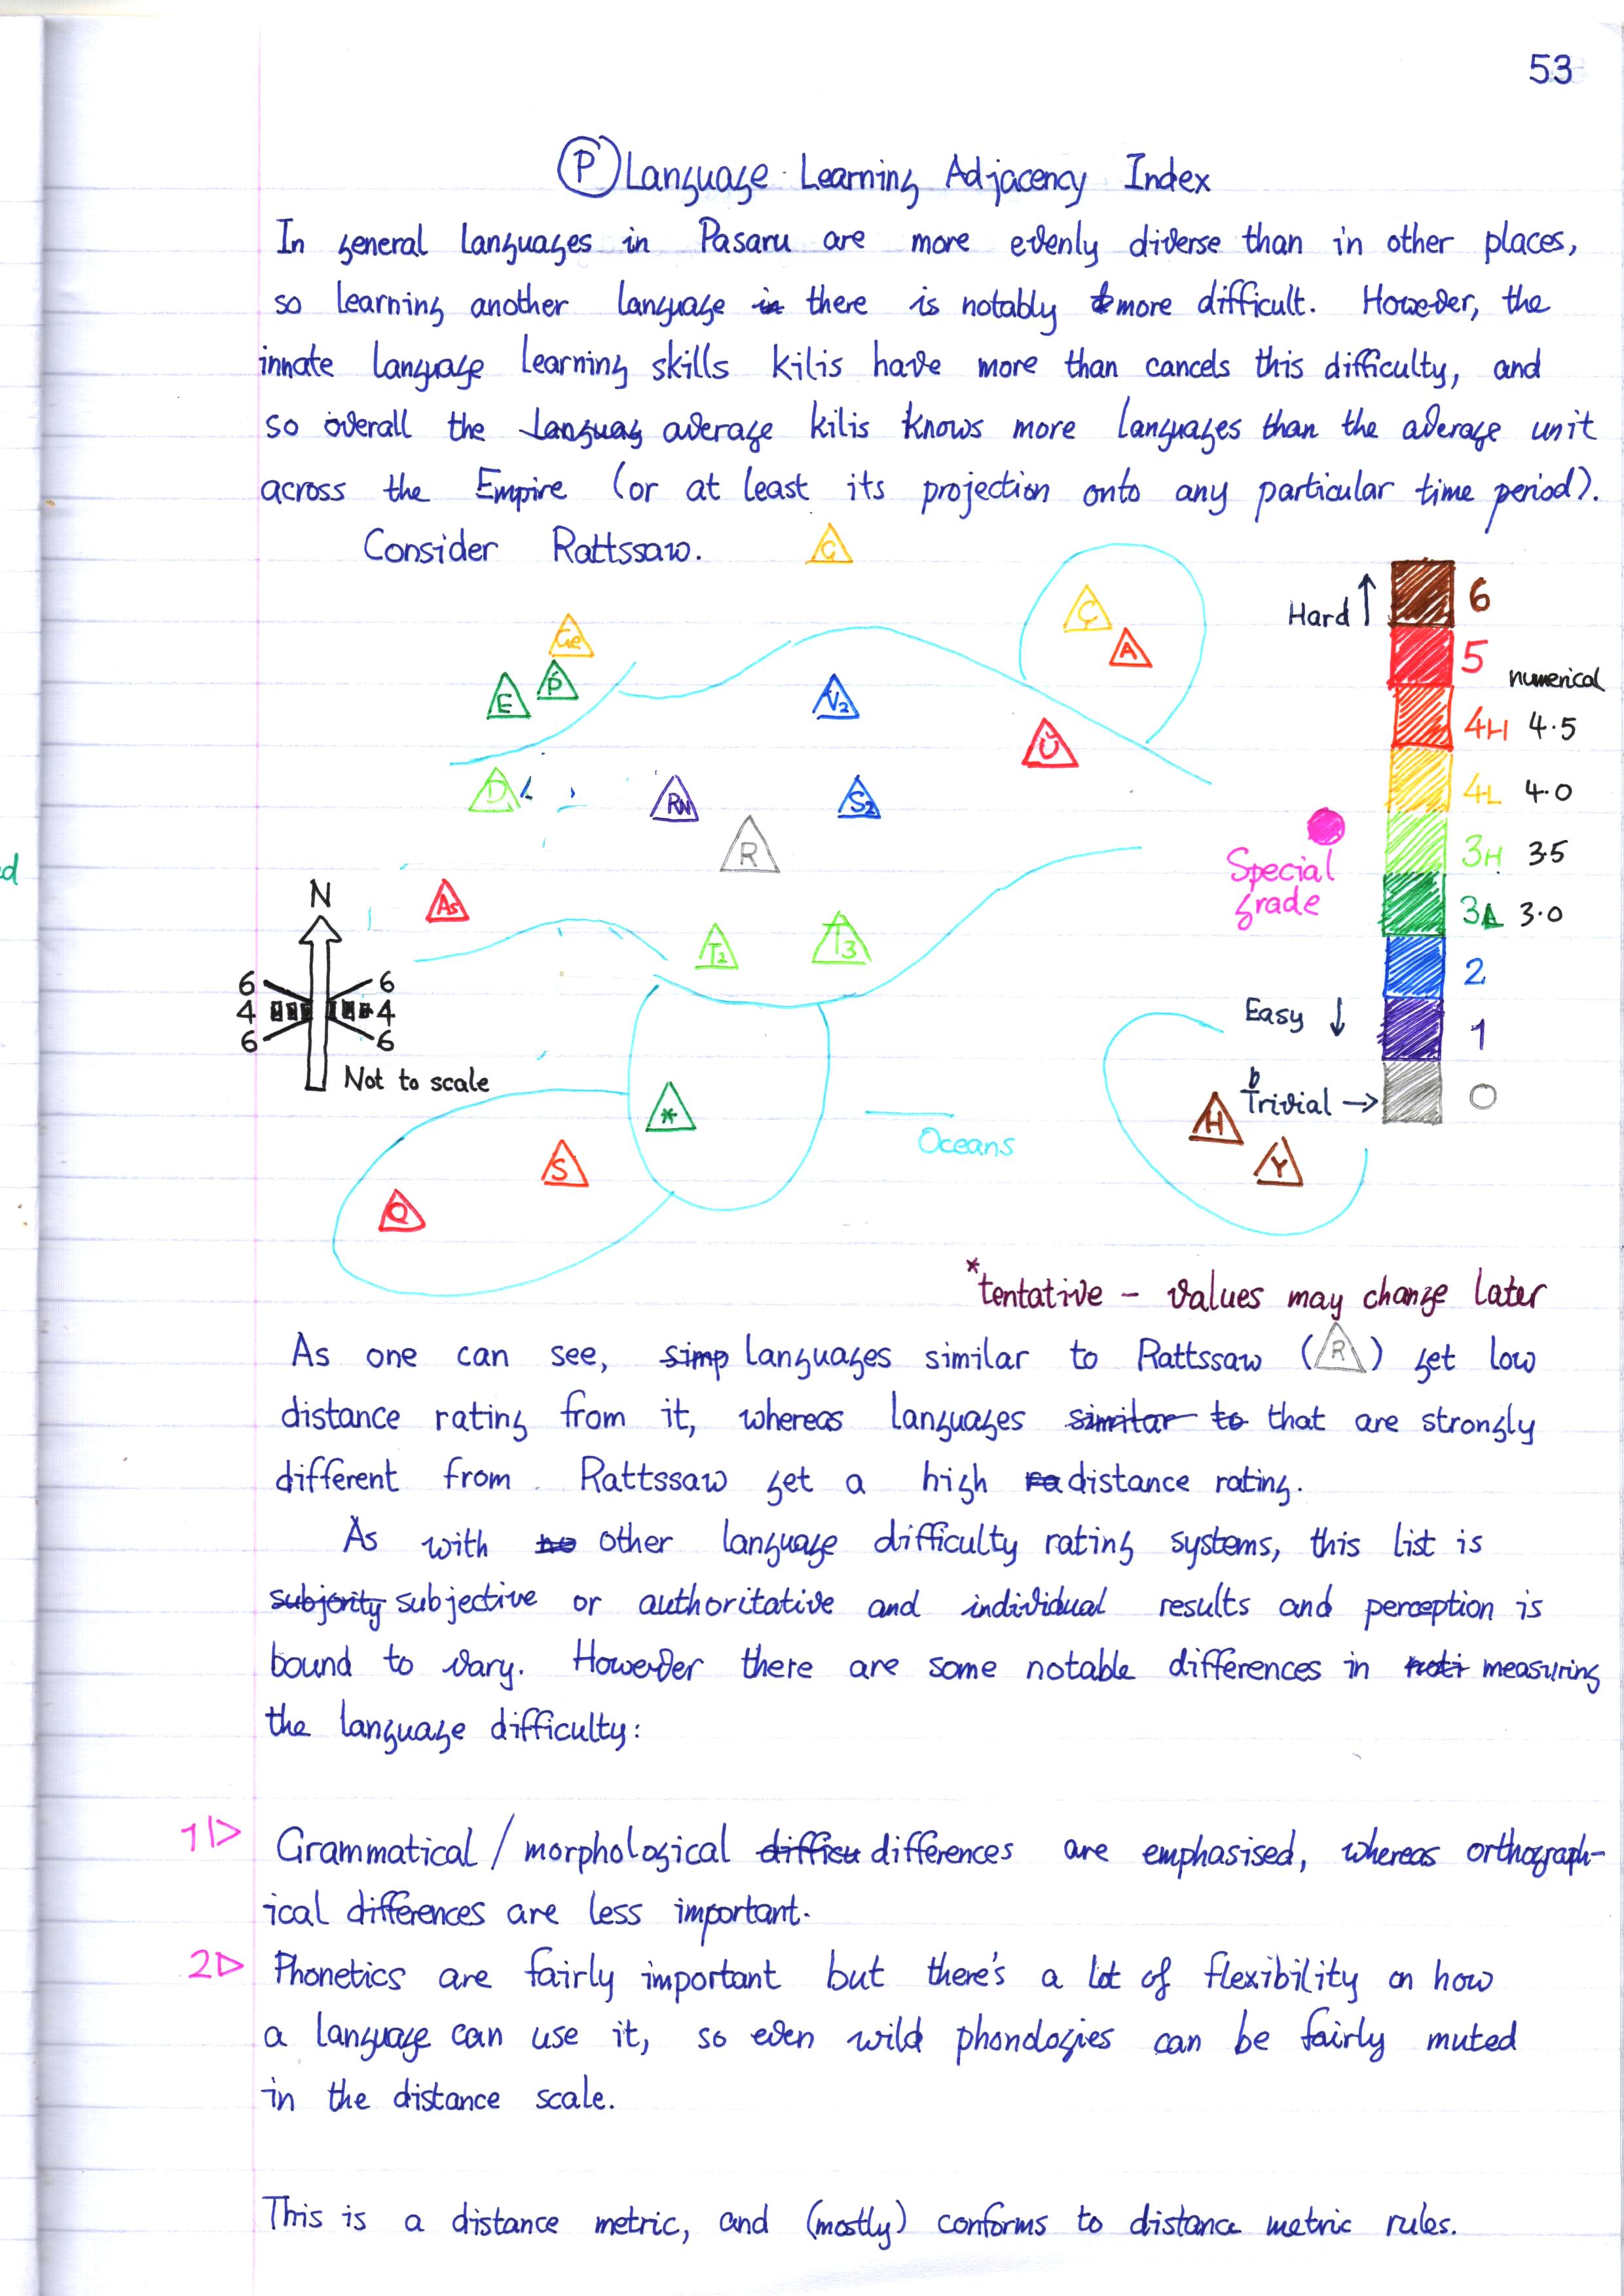 53
Ⓟ Language Learning Adjacency Index
In general languages in Pasaru are more evenly diverse than in other places,
so learning another language in there is notably more difficult. However, the
innate language learning skills kilis have more than cancels this difficulty, and
so overall the Languag average kilis knows more languages than the average unit
across the Empire (or at least its projection onto any particular time period).
Consider Rattssaw.
Ç
A
Ge
P
E
V2
Ü
D
RN
S2
R
As
T2
T3
N
6 6
4 4
6 6
Not to scale
*
S
Q
Oceans
H
Y
Hard ↑
6
5
numerical
4H 4.5
4L 4.0
3H 3.5
3L 3.0
2
Easy ↓
1
Trivial →
0
Special
grade
d
*tentative - values may change later
As one can see, simp languages similar to Rattssaw (R) get low
distance rating from it, whereas languages similar to that are strongly
different from Rattssaw get a high ra distance rating.
As with no other language difficulty rating systems, this list is
subjority subjective or authoritative and individual results and perception is
bound to vary. However there are some notable differences in noti measuring
the language difficulty:
1▷ Grammatical / morphological difficu differences are emphasised, whereas orthograph-
ical differences are less important.
2▷ Phonetics are fairly important but there's a lot of flexibility on how
a language can use it, so even wild phonologies can be fairly muted
in the distance scale.
This is a distance metric, and (mostly) conforms to distance metric rules.